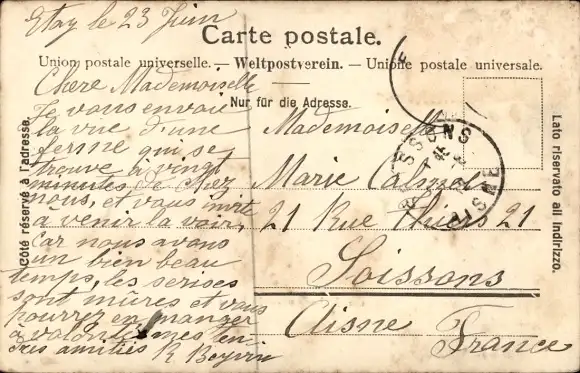 Etay le 23 Juin
Carte postale.
Union postale universelle. — Weltpostverein. — Unione postale universale.
Nur für die Adresse.
Côté réservé à l'adresse.
Lato riservato all indirizzo.
Chere Mademoiselle
Je vous envoie
la vue d'une
ferme qui se
trouve à vingt
minutes de chez
nous, et vous invite
a venir la voir,
car nous avons
un bien beau
temps, les serises
sont mûres et vous
pourrez en manger
à volonté mes ten
dres amitiés R. Beyrin
Mademoiselle
Marie Calmol
21 Rue Thiers 21
Soissons
Aisne France
SOISSONS
AISNE